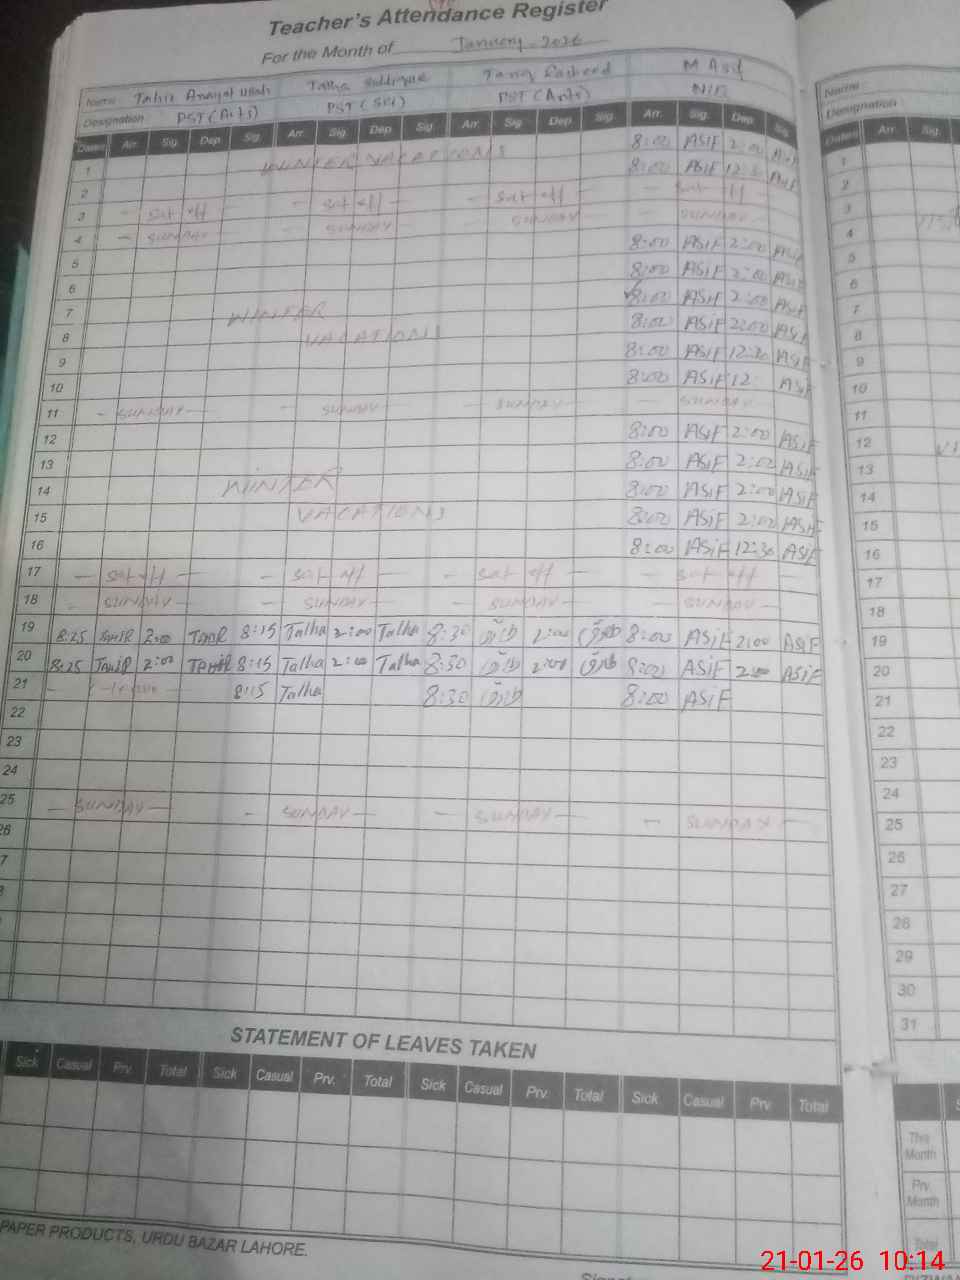 Teacher's Attendance Register
For the Month of January - 2026
Name Tahir Anayat Ullah Talha Siddique Tariq Rasheed M Asif
Designation PST (Arts) PST (Sci) PST (Arts) N/Q
Dates Arr. Sig. Dep. Sig. Arr. Sig. Dep. Sig. Arr. Sig. Dep. Sig. Arr. Sig. Dep. Sig.
1 WINTER VACATIONS 8:00 ASIF 2:00 ASIF
2 8:00 ASIF 12:30 ASIF
3 - Sat off - - Sat off - - Sat off - - Sat off
4 - SUNDAY - - SUNDAY - SUNDAY - SUNDAY
5 8:00 ASiF 2:00 ASiF
6 8:00 ASiF 2:00 ASiF
7 WINTER 8:00 ASIF 2:00 ASIF
8 VACATIONS 8:00 ASiF 2:00 ASiF
9 8:00 ASiF 12:30 ASiF
10 8:00 ASiF 12: ASiF
11 - SUNDAY - - SUNDAY - - SUNDAY - - SUNDAY
12 8:00 ASiF 2:00 ASiF
13 8:00 ASiF 2:00 ASiF
14 WINTER 8:00 ASiF 2:00 ASiF
15 VACATIONS 8:00 ASiF 2:00 ASiF
16 8:00 ASiF 12:30 ASiF
17 - Sat off - - Sat off - - Sat off - - Sat off -
18 - SUNDAY - - SUNDAY - - SUNDAY - - SUNDAY -
19 8:25 TAHIR 2:00 TAHIR 8:15 Talha 2:00 Talha 8:30 طارق 2:00 طارق 8:00 ASiF 2:00 ASiF
20 8:25 TAHIR 2:00 TAHIR 8:15 Talha 2:00 Talha 8:30 طارق 2:00 طارق 8:00 ASiF 2:00 ASiF
21 - leave - 8:15 Talha 8:30 طارق 8:00 ASiF
22
23
24
25 - SUNDAY - - SUNDAY - - SUNDAY - - SUNDAY -
26
7
STATEMENT OF LEAVES TAKEN
Sick Casual Prv. Total Sick Casual Prv. Total Sick Casual Prv. Total Sick Casual Prv. Total
PAPER PRODUCTS, URDU BAZAR LAHORE.
Name
Designation
Dates Arr. Sig.
1
2
3
4
5
6
7
8
9
10
11
12
13
14
15
16
17
18
19
20
21
22
23
24
25
26
27
28
29
30
31
This Month
Prv. Month
Total
21-01-26 10:14